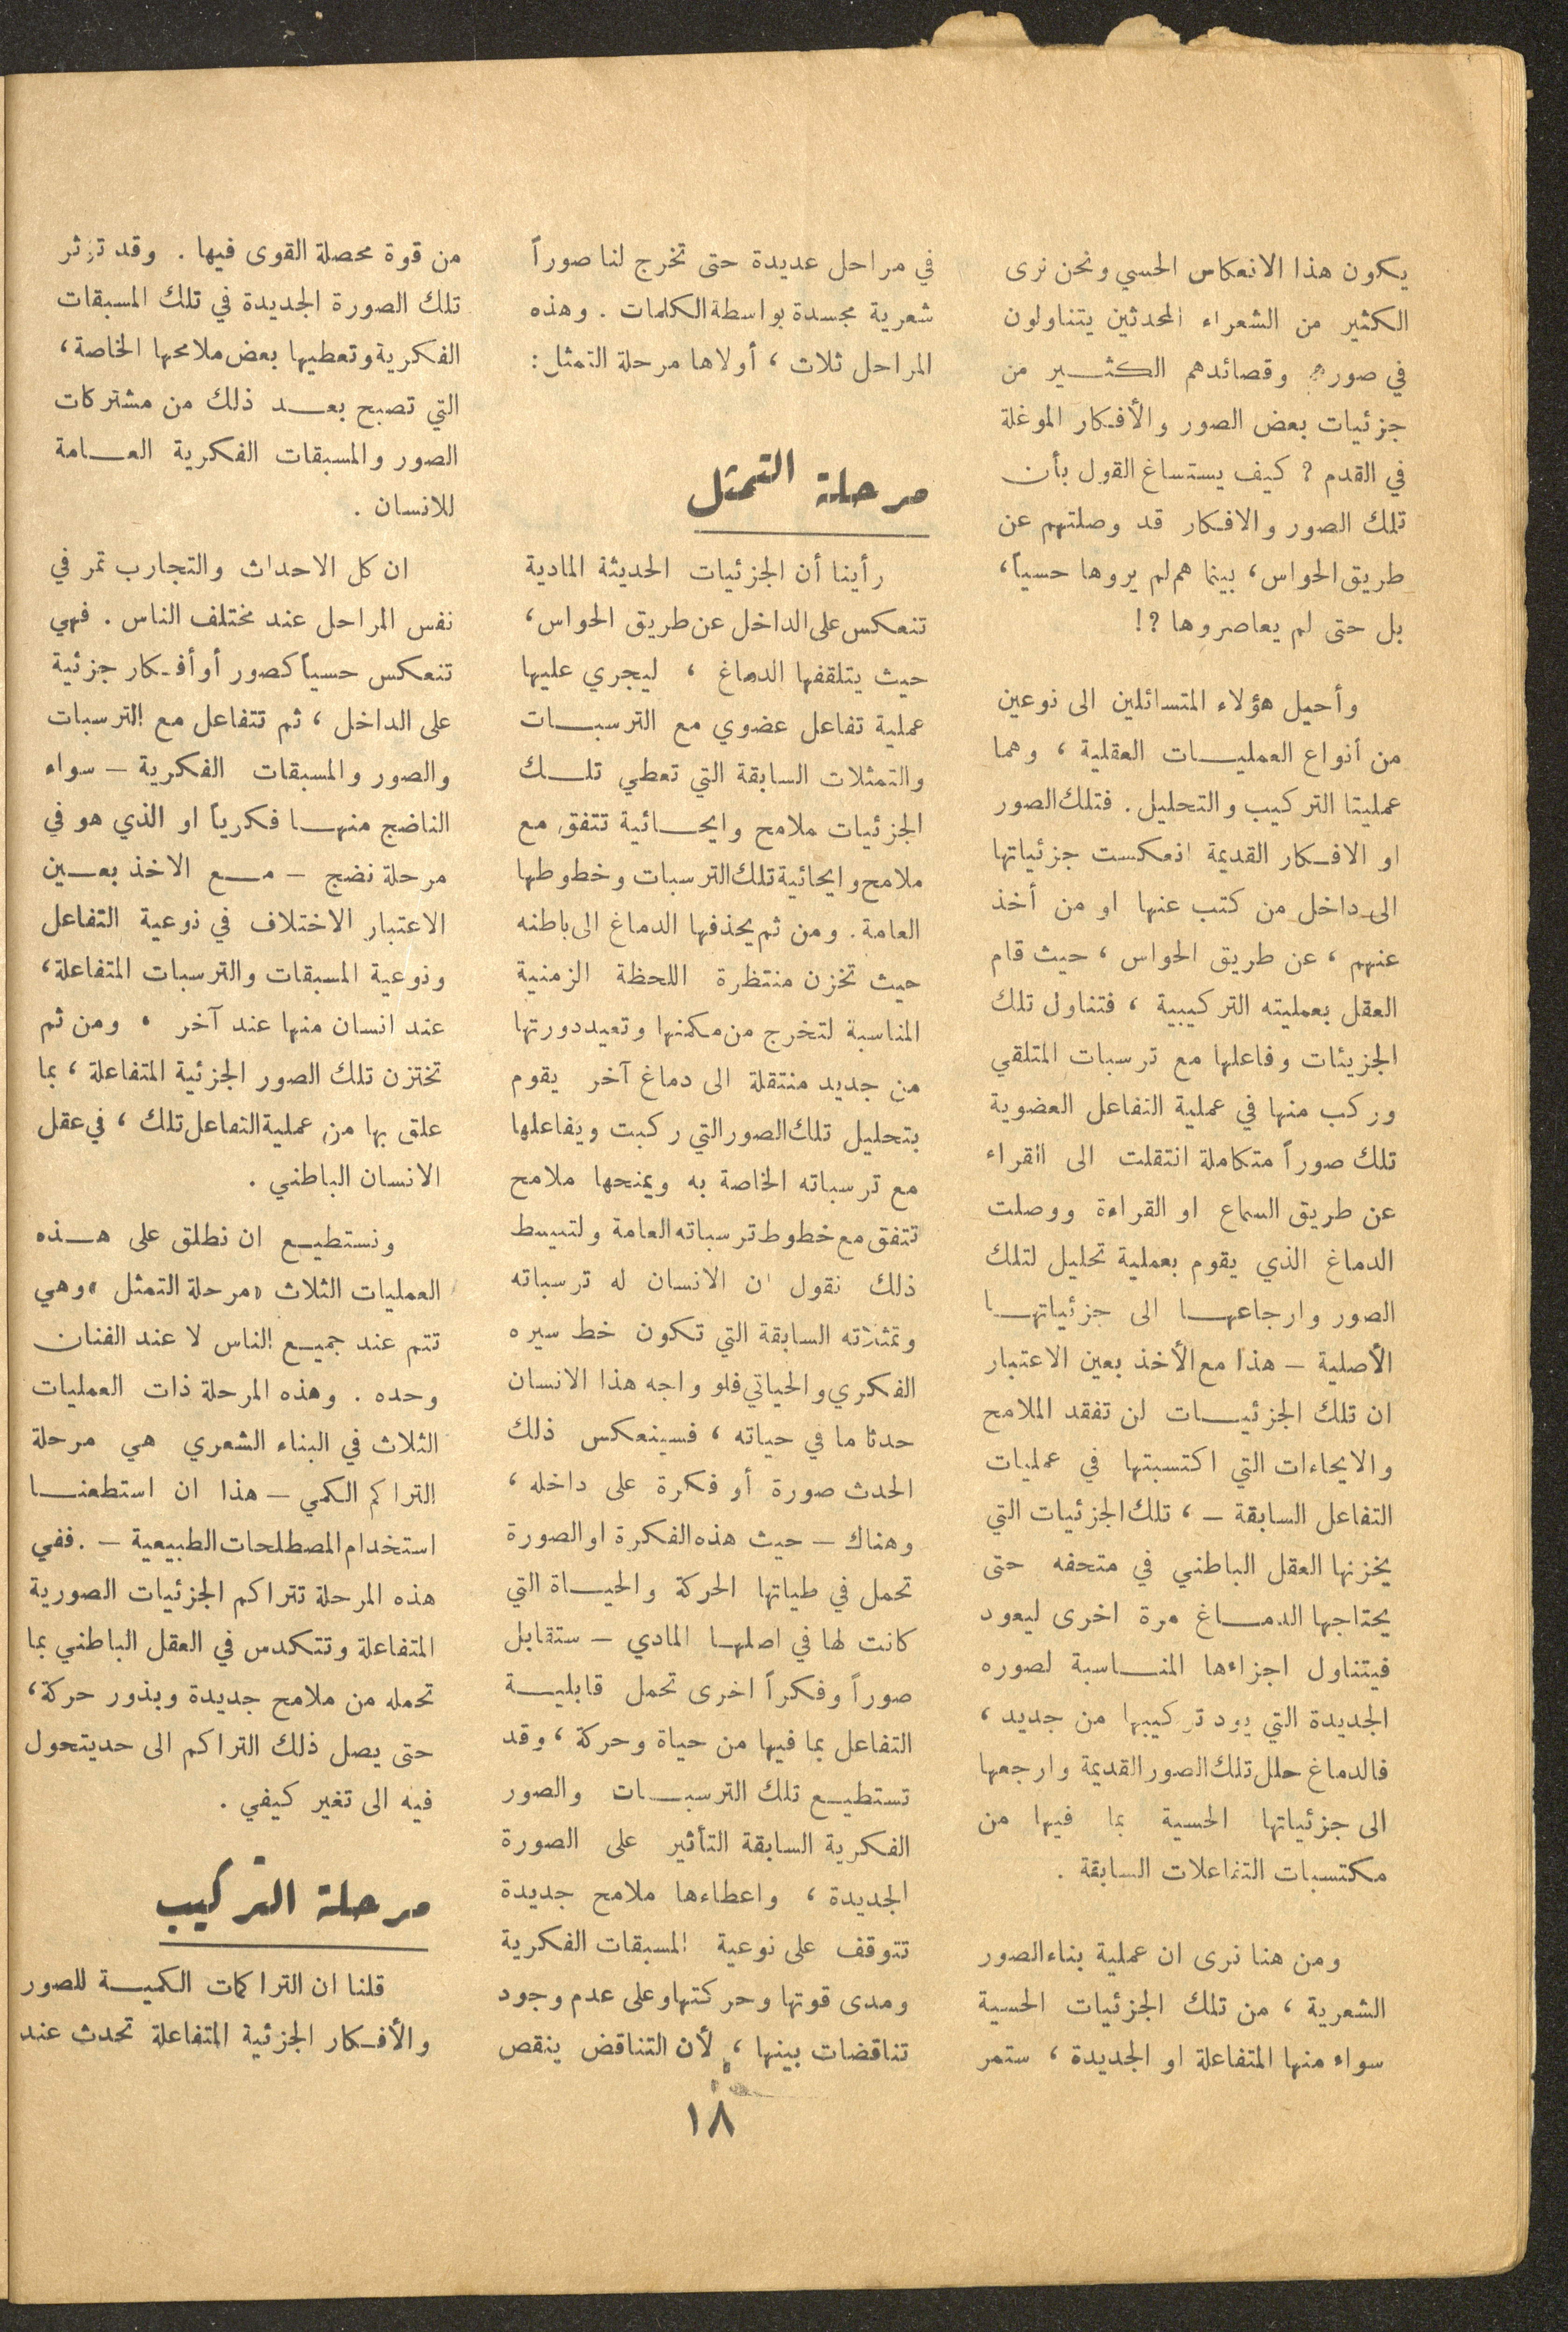 يكون هذا الانعكاس الحسي ونحن نرى
الكثير من الشعراء المحدثين يتناولون
في صورهم وقصائدهم الكثير من
جزئيات بعض الصور والأفكار الموغلة
في القدم ? كيف يستساغ القول بأن
تلك الصور والافكار قد وصلتهم عن
طريق الحواس، بينما هم لم يروها حسياً،
بل حتى لم يعاصروها ?!
وأحيل هؤلاء المتسائلين الى نوعين
من أنواع العمليات العقلية ، وهما
عمليتا التركيب والتحليل. فتلك الصور
او الافكار القديمة انعكست جزئياتها
الى داخل من كتب عنها او من أخذ
عنهم ، عن طريق الحواس ، حيث قام
العقل بعمليته التركيبية ، فتناول تلك
الجزيئات وفاعلها مع ترسبات المتلقي
وركب منها في عملية التفاعل العضوية
تلك صوراً متكاملة انتقلت الى القراء
عن طريق السماع او القراءة ووصلت
الدماغ الذي يقوم بعملية تحليل لتلك
الصور وارجاعها الى جزئياتها
الأصلية – هذا مع الأخذ بعين الاعتبار
ان تلك الجزئيات لن تفقد الملامح
والايحاءات التي اكتسبتها في عمليات
التفاعل السابقة – ، تلك الجزئيات التي
يخزنها العقل الباطني في متحفه حتى
يحتاجها الدماغ مرة اخرى ليعود
فيتناول اجزاءها المناسبة لصوره
الجديدة التي يود تركيبها من جديد ،
فالدماغ حلل تلك الصور القديمة وارجعها
الى جزئياتها الحسية بما فيها من
مكتسبات التفاعلات السابقة .
ومن هنا نرى ان عملية بناء الصور
الشعرية ، من تلك الجزئيات الحسية
سواء منها المتفاعلة او الجديدة ، ستمر
في مراحل عديدة حتى تخرج لنا صوراً
شعرية مجسدة بواسطة الكلمات . وهذه
المراحل ثلاث ، أولاها مرحلة التمثل :
مرحلة التمثل
رأينا أن الجزئيات الحديثة المادية
تنعكس على الداخل عن طريق الحواس،
حيث يتلقفها الدماغ ، ليجري عليها
عملية تفاعل عضوي مع الترسبات
والتمثلات السابقة التي تعطي تلك
الجزئيات ملامح وايحائية تتفق مع
ملامح وايحائية تلك الترسبات وخطوطها
العامة. ومن ثم يحذفها الدماغ الى باطنه
حيث تخزن منتظرة اللحظة الزمنية
المناسبة لتخرج من مكمنها وتعيد دورتها
من جديد منتقلة الى دماغ آخر يقوم
بتحليل تلك الصور التي ركبت ويفاعلها
مع ترسباته الخاصة به ويمنحها ملامح
تتفق مع خطوط ترسباته العامة ولتبسط
ذلك نقول ان الانسان له ترسباته
وتمثلاته السابقة التي تكون خط سيره
الفكري والحياتي فلو واجه هذا الانسان
حدثا ما في حياته ، فسينعكس ذلك
الحدث صورة أو فكرة على داخله ،
وهناك – حيث هذه الفكرة او الصورة
تحمل في طياتها الحركة والحياة التي
كانت لها في اصلها المادي – ستقابل
صوراً وفكراً اخرى تحمل قابلية
التفاعل بما فيها من حياة وحركة ، وقد
تستطيع تلك الترسبات والصور
الفكرية السابقة التأثير على الصورة
الجديدة ، واعطاءها ملامح جديدة
تتوقف على نوعية المسبقات الفكرية
ومدى قوتها وحركتها وعلى عدم وجود
تناقضات بينها ، لأن التناقض ينقص
من قوة محصلة القوى فيها . وقد تؤثر
تلك الصورة الجديدة في تلك المسبقات
الفكرية وتعطيها بعض ملامحها الخاصة ،
التي تصبح بعد ذلك من مشتركات
الصور والمسبقات الفكرية العامة
للانسان .
ان كل الاحداث والتجارب تمر في
نفس المراحل عند مختلف الناس . فهي
تنعكس حسياً كصور أو أفكار جزئية
على الداخل ، ثم تتفاعل مع الترسبات
والصور والمسبقات الفكرية – سواء
الناضج منها فكرياً او الذي هو في
مرحلة نضج – مع الاخذ بعين
الاعتبار الاختلاف في نوعية التفاعل
ونوعية المسبقات والترسبات المتفاعلة ،
عند انسان منها عند آخر . ومن ثم
تختزن تلك الصور الجزئية المتفاعلة ، بما
علق بها من عملية التفاعل تلك ، في عقل
الانسان الباطني .
ونستطيع ان نطلق على هذه
العمليات الثلاث «مرحلة التمثل» وهي
تتم عند جميع الناس لا عند الفنان
وحده . وهذه المرحلة ذات العمليات
الثلاث في البناء الشعري هي مرحلة
التراكم الكمي – هذا ان استطعنا
استخدام المصطلحات الطبيعية – . ففي
هذه المرحلة تتراكم الجزئيات الصورية
المتفاعلة وتتكدس في العقل الباطني بما
تحمله من ملامح جديدة وبذور حركة ،
حتى يصل ذلك التراكم الى حد يتحول
فيه الى تغير كيفي .
مرحلة التركيب
قلنا ان التراكمات الكمية للصور
والأفكار الجزئية المتفاعلة تحدث عند
١٨